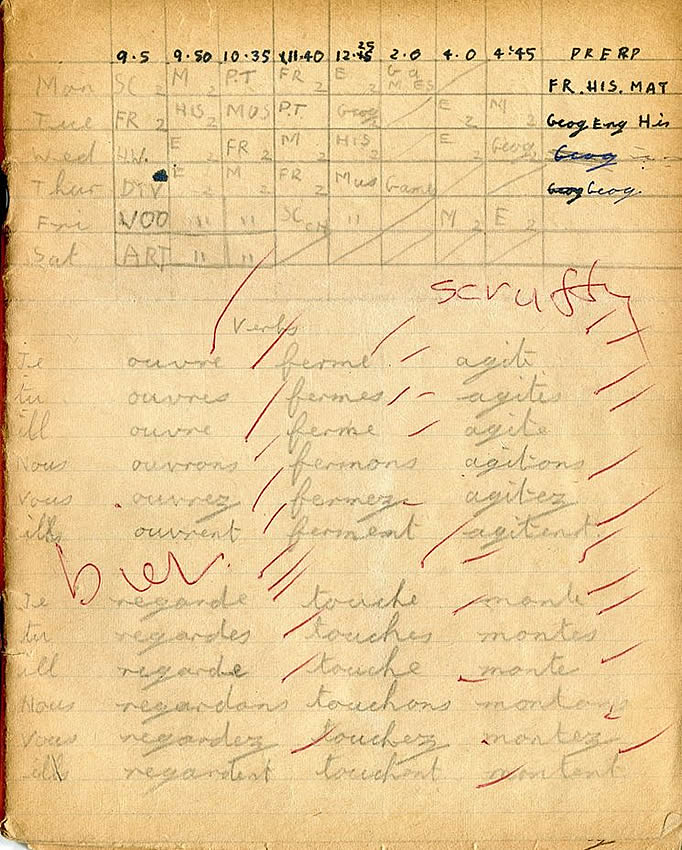 9.5 9.50 10.35 11.40 12.25 2.0 4.0 4.45 PRERP
Mon SC 2 M 2 P.T FR 2 E 2 Ga M ES FR. HIS. MAT
Tue FR 2 HIS 2 MUS P.T Geog 2 E 2 M 2 Geog Eng His
Wed H.W. E 2 FR 2 M 2 HIS 2 E 2 Geog 2 Geog
Thur DIV E 2 M 2 FR 2 Mus Games Geog Geog.
Fri WOO " " SC CH " M 2 E 2
Sat ART " "
scruffy
Verbs
Je ouvre ferme agite
tu ouvres fermes agites
ill ouvre ferme agite
Nous ouvrons fermons agitons
vous ouvrez fermez agitez
ills ouvrent ferment agitent.
bien.
Je regarde touche monte
tu regardes touches montes
ill regarde touche monte
Nous regardons touchons montons
Vous regardez touchez montez
ills regardent touchont montent